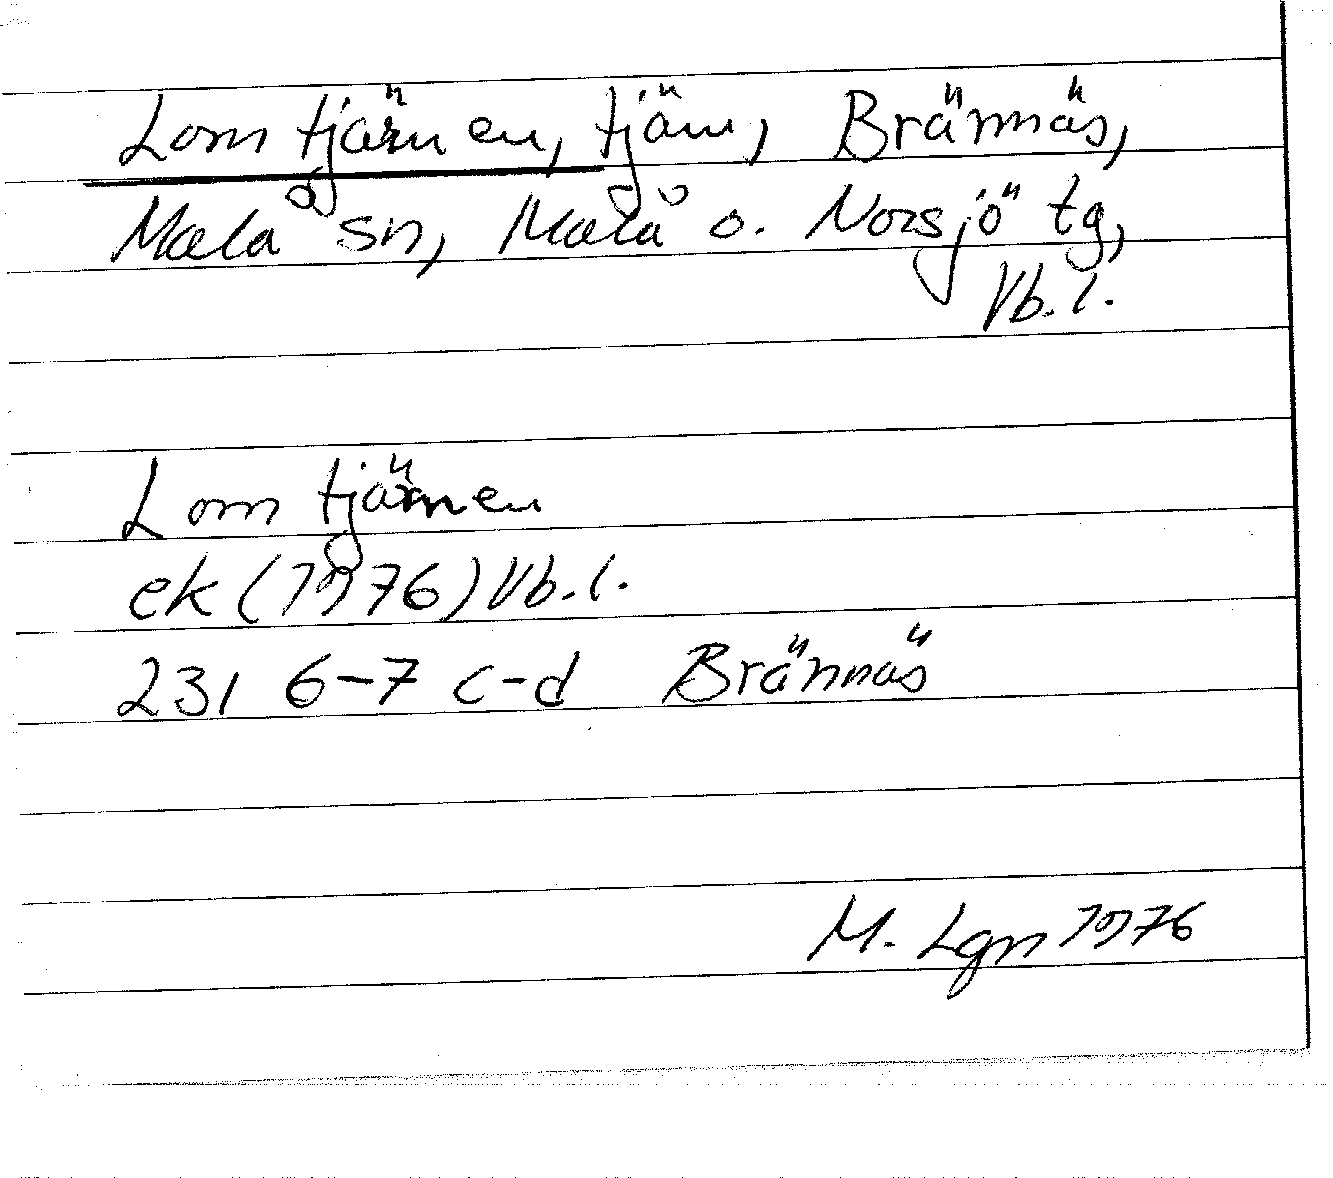 Lomtjärnen, tjärn, Brännäs,
Malå sn, Malå o. Norsjö tg,
Vb. l.
Lomtjärnen
ek (1976) Vb. l.
231 6-7 c-d Brännäs
M. Lgn 1976